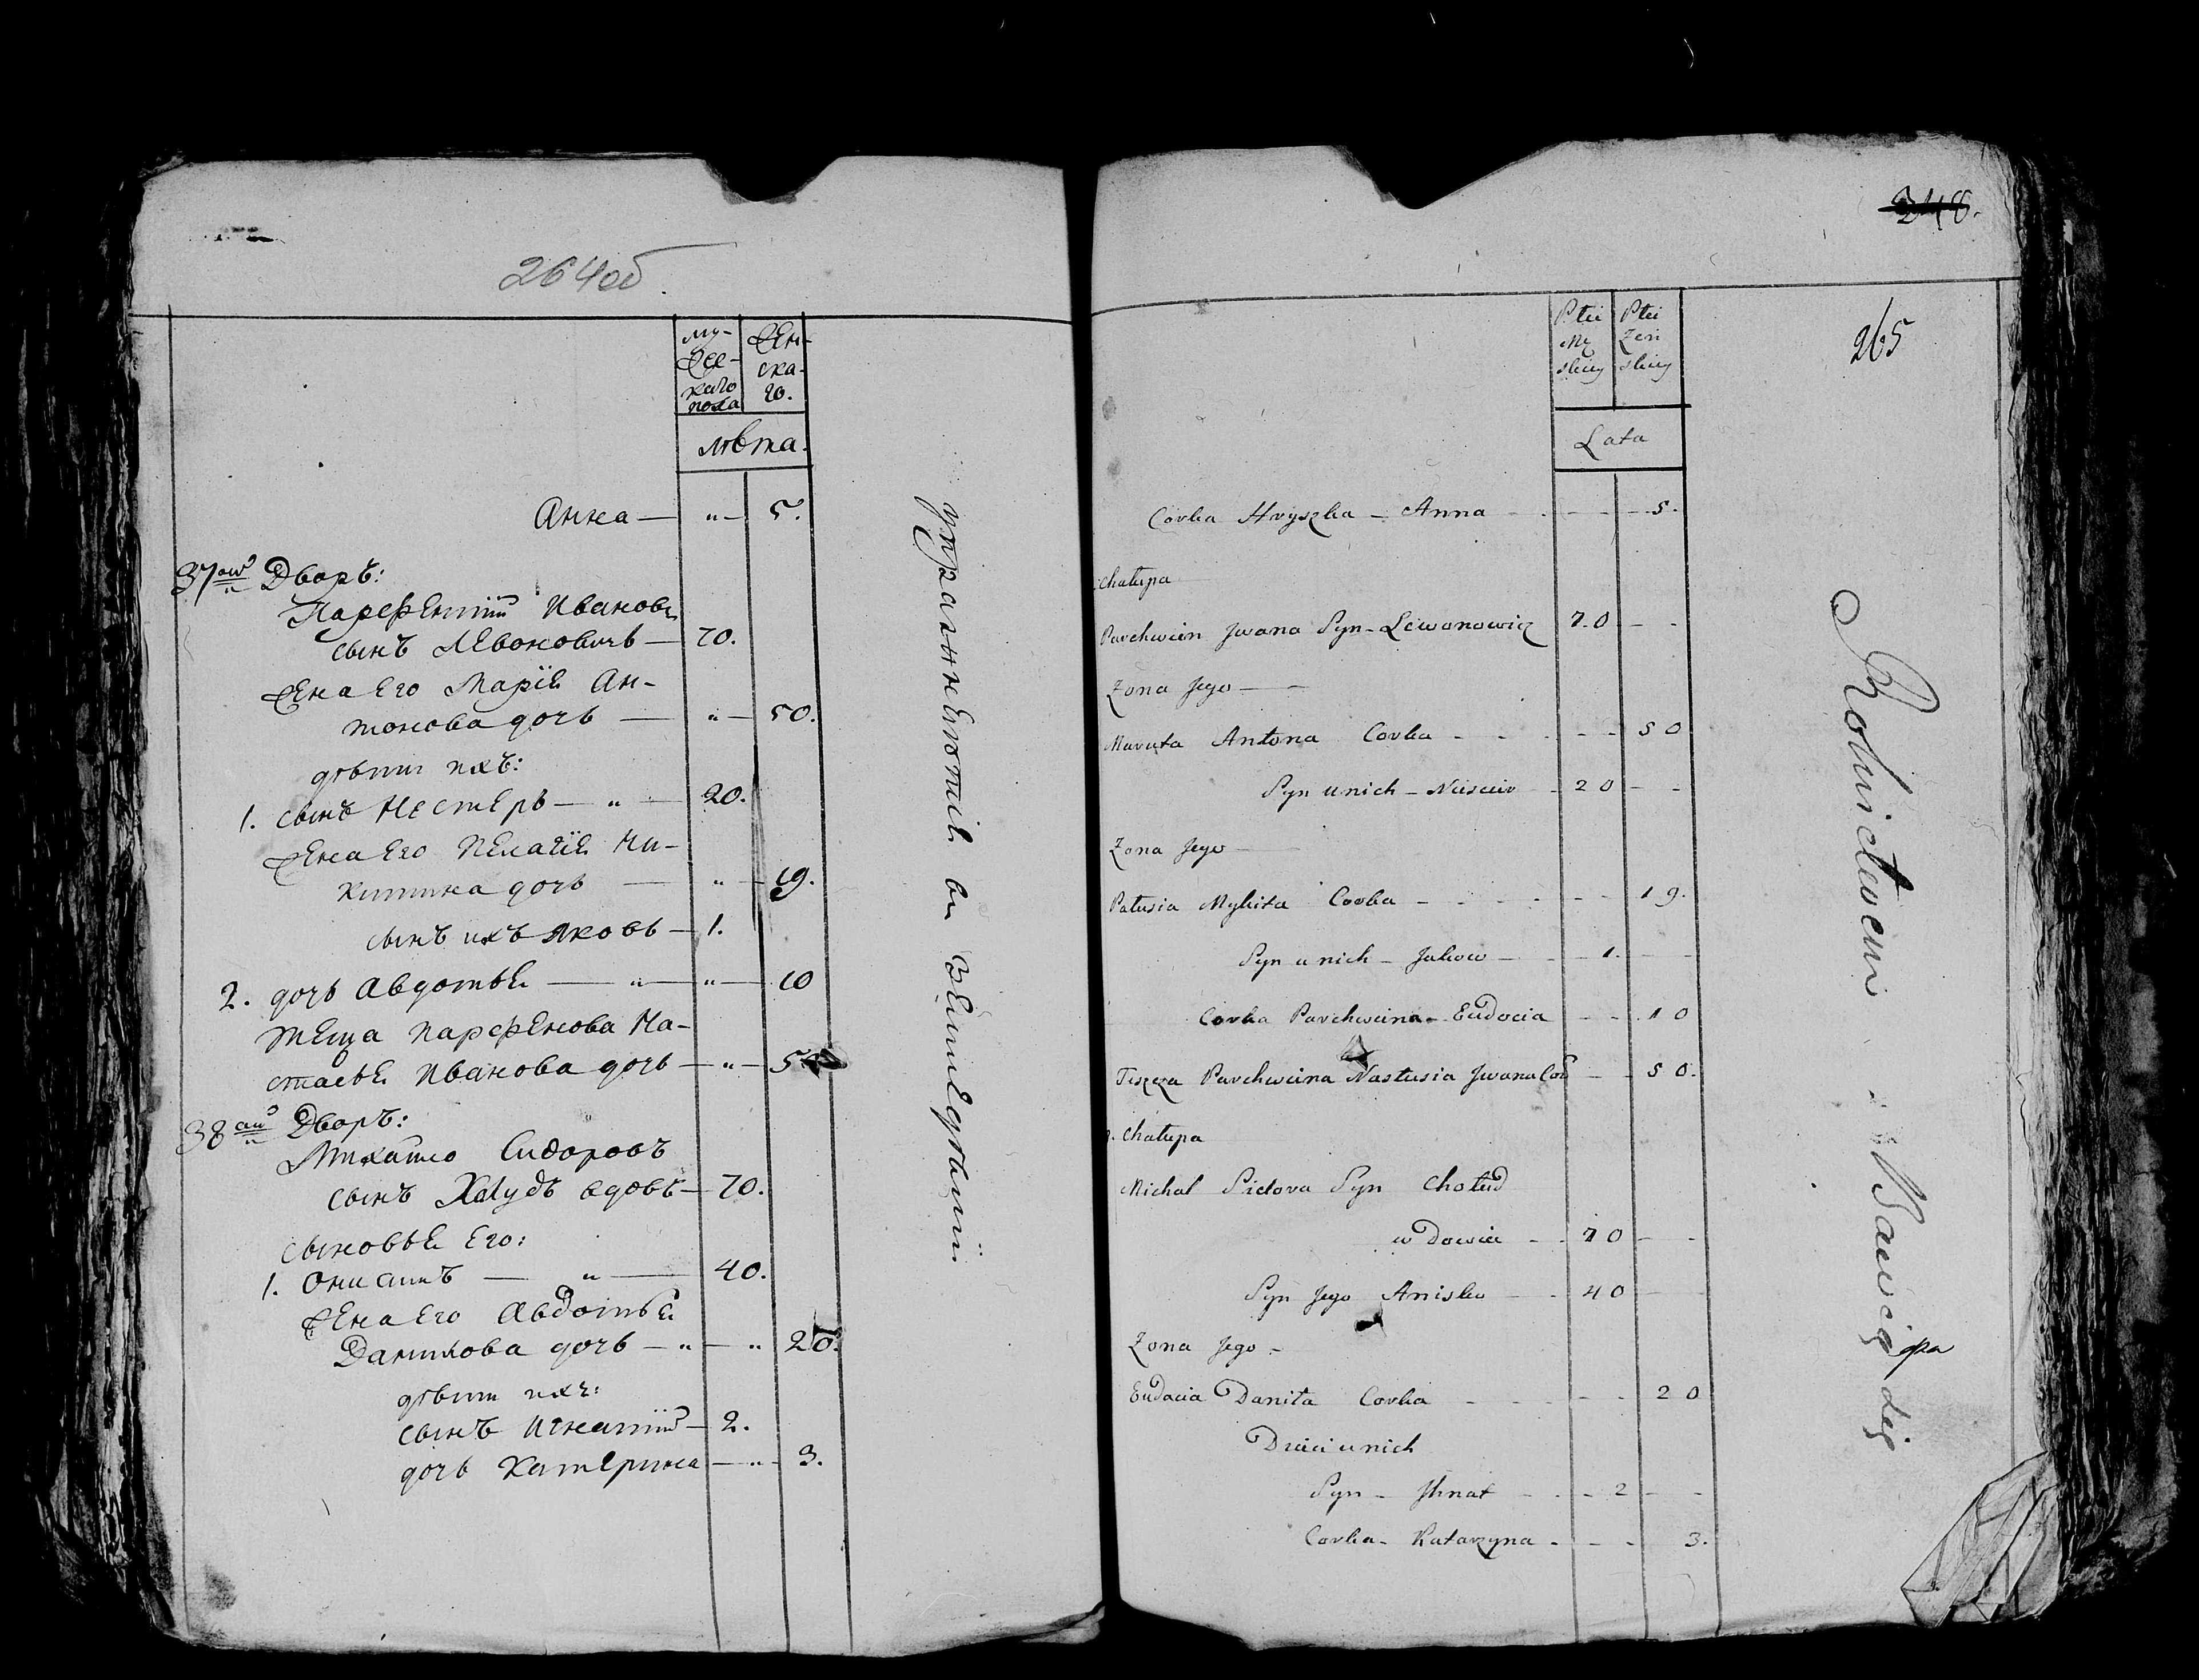 264об.
му-
жес-
каго
пола
жен-
ска-
го.
лѣта.
Анна — „ — 5.
37ой Дворъ:
Парфентий Ивановъ
сынъ Левоновичъ — 70.
жена Его Марiя Ан-
тонова дочь — „ — 50.
дѣти ихъ:
1. сынъ Нестеръ — „ — 20.
жена Его Пелагiя Ни-
китина дочь — „ — 19.
сынъ ихъ Яковъ — 1.
2. дочь Авдотья — „ — „ — 10
теща Парфенова На-
стасья Иванова дочь — „ — 50
38ой Дворъ:
Михайло Сидоровъ
сынъ Халудъ вдовъ — 70.
сыновья Его:
1. Онисимъ — „ — 40.
жена Его Авдотья
Данилова дочь — „ — „ 20.
дѣти ихъ:
сынъ Игнатий — 2.
дочь Катерина — „ — 3.
упражненiя въ Земледѣлiи
248.
265
Płci
Mę
skiey
Płci
Żeń
skiey
Lata
Corka Hryszka - Anna - - - - 5.
Chałupa
Parchwien Jwana Syn - Lewonowicz 70 - -
Żona Jego —
Maruta Antona Corka - - - - - 50
Syn u nich - - 20 - -
Żona Jego —
Patusia Mykita Corka - - - - - 19.
Syn u nich - Jakow - - 1. - -
Corka Parchwina - Eudocia - - 10
Teszcza Parchwina Nastusia Jwana Cor - - 50.
Chałupa
Michał Sidora Syn Chołud
wdowiec - - 70 - -
Syn Jego Anisko - - 40 - -
Żona Jego -
Eudocia Daniła Corka - - - - - 20
Dzieci u nich
Syn - Jhnat - - - 2 - -
Corka - Katarzyna - - - - 3.
Rolnictwem Bawią się